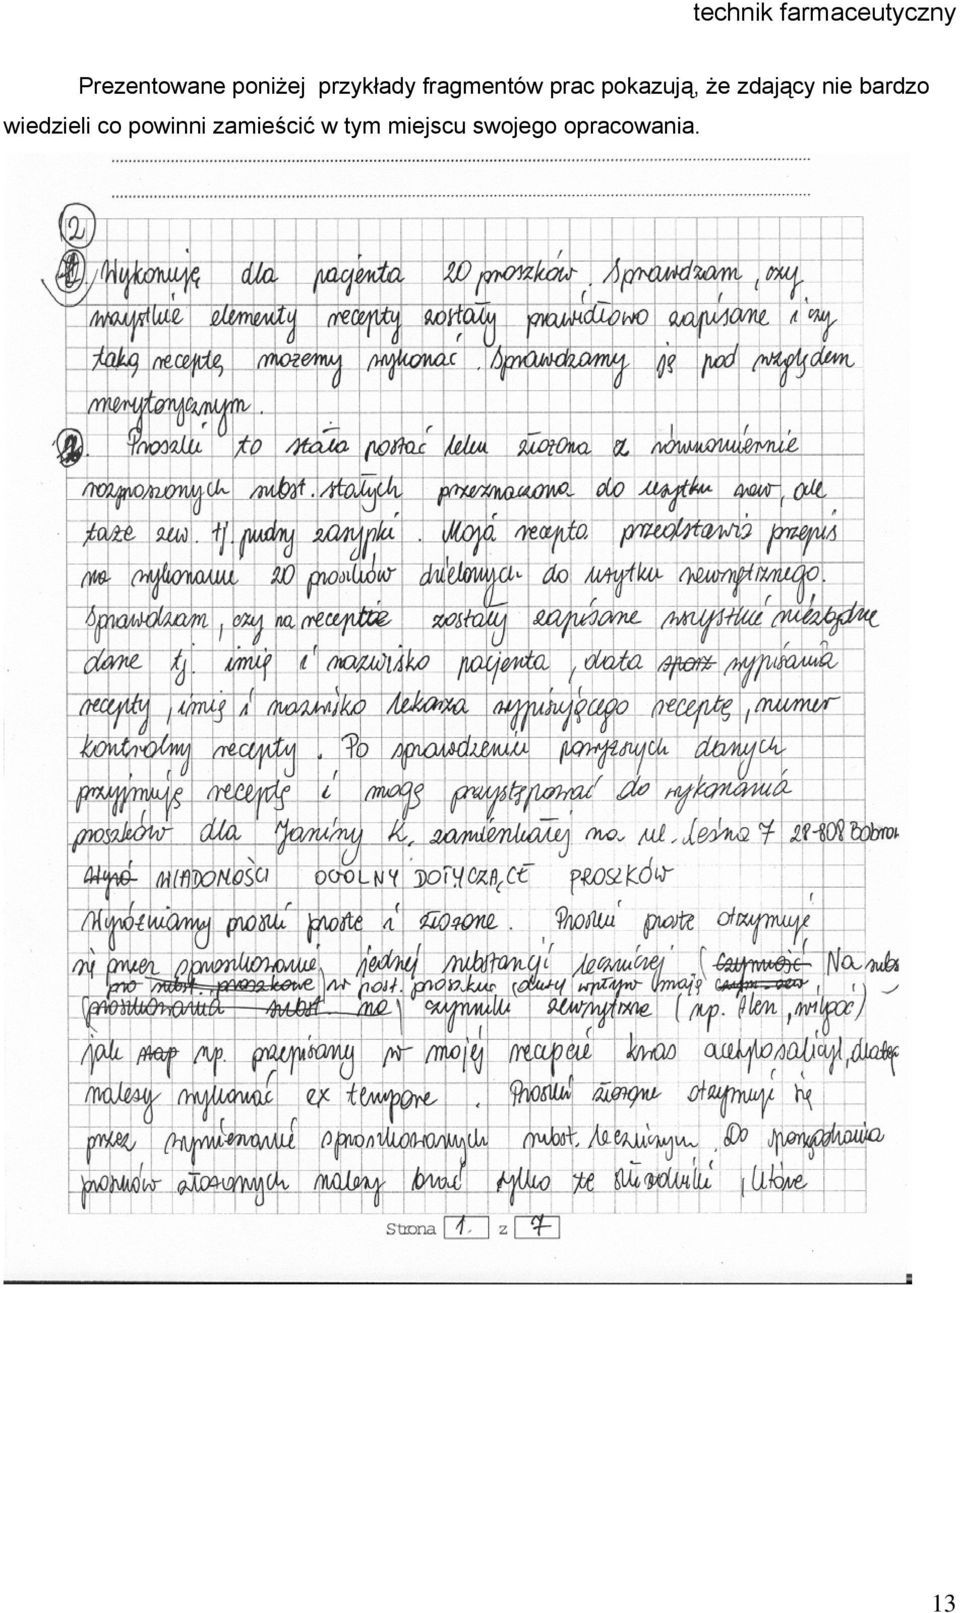 technik farmaceutyczny
Prezentowane poniżej przykłady fragmentów prac pokazują, że zdający nie bardzo
wiedzieli co powinni zamieścić w tym miejscu swojego opracowania.
2
1. Wykonuję dla pacjenta 20 proszków. Sprawdzam, czy
wszystkie elementy recepty zostały prawidłowo zapisane i czy
taką receptę możemy wykonać. Sprawdzamy ją pod względem
merytorycznym.
2. Proszki to stała postać leku złożona z równomiernie
rozproszonych subst. stałych przeznaczona do użytku wew, ale
także zew. tj. pudry zasypki. Moja recepta przedstawia przepis
na wykonanie 20 proszków dzielonych do użytku wewnętrznego.
Sprawdzam, czy na recepcie zostały zapisane wszystkie niezbędne
dane tj. imię i nazwisko pacjenta, data wypisania
recepty, imię i nazwisko lekarza wypisującego receptę, numer
kontrolny recepty. Po sprawdzeniu powyższych danych
przyjmuję receptę i mogę przystępować do wykonania
proszków dla Janiny K. zamieszkałej na ul. Leśna 7 28-808 Bobrow
WIADOMOŚCI OGÓLNY DOTYCZĄCE PROSZKÓW
Wyróżniamy proszki proste i złożone. Proszki proste otrzymuje
się przez sproszkowanie jednej substancji leczniczej (czynność Na subs
pro subst. proszkowe w post. proszku duży wpływ mają
(proszkowania subst. na) czynniki zewnętrzne (np. tlen, wilgoć)
jak np. przepisany w mojej recepcie kwas acetylosalicyl, dlatego
należy wykonać ex tempore. Proszki złożone otrzymuje się
przez wymieszanie sproszkowanych subst. leczniczych. Do sporządzania
proszków złożonych należy brać tylko te składniki, które
Strona 1. z 7
13